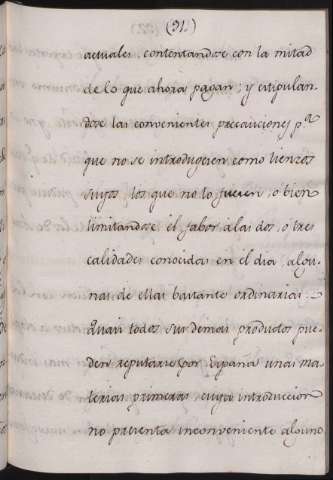 (31.)
actuales, contentandose con la mitad
de lo que ahora pagan; y estipulan-
dose las convenientes precauciones p.ª
que no se introdugesen como lienzos
suyos, los que no lo fuesen, ó bien
limitandose el fabor á las dos, ó tres
calidades conocidas en el dia, algu-
nas de ellas bastante ordinarias.
Quasi todos sus demas productos pue-
den reputarse por España unas ma-
terias primeras, cuya introduccion
no presenta inconveniente alguno